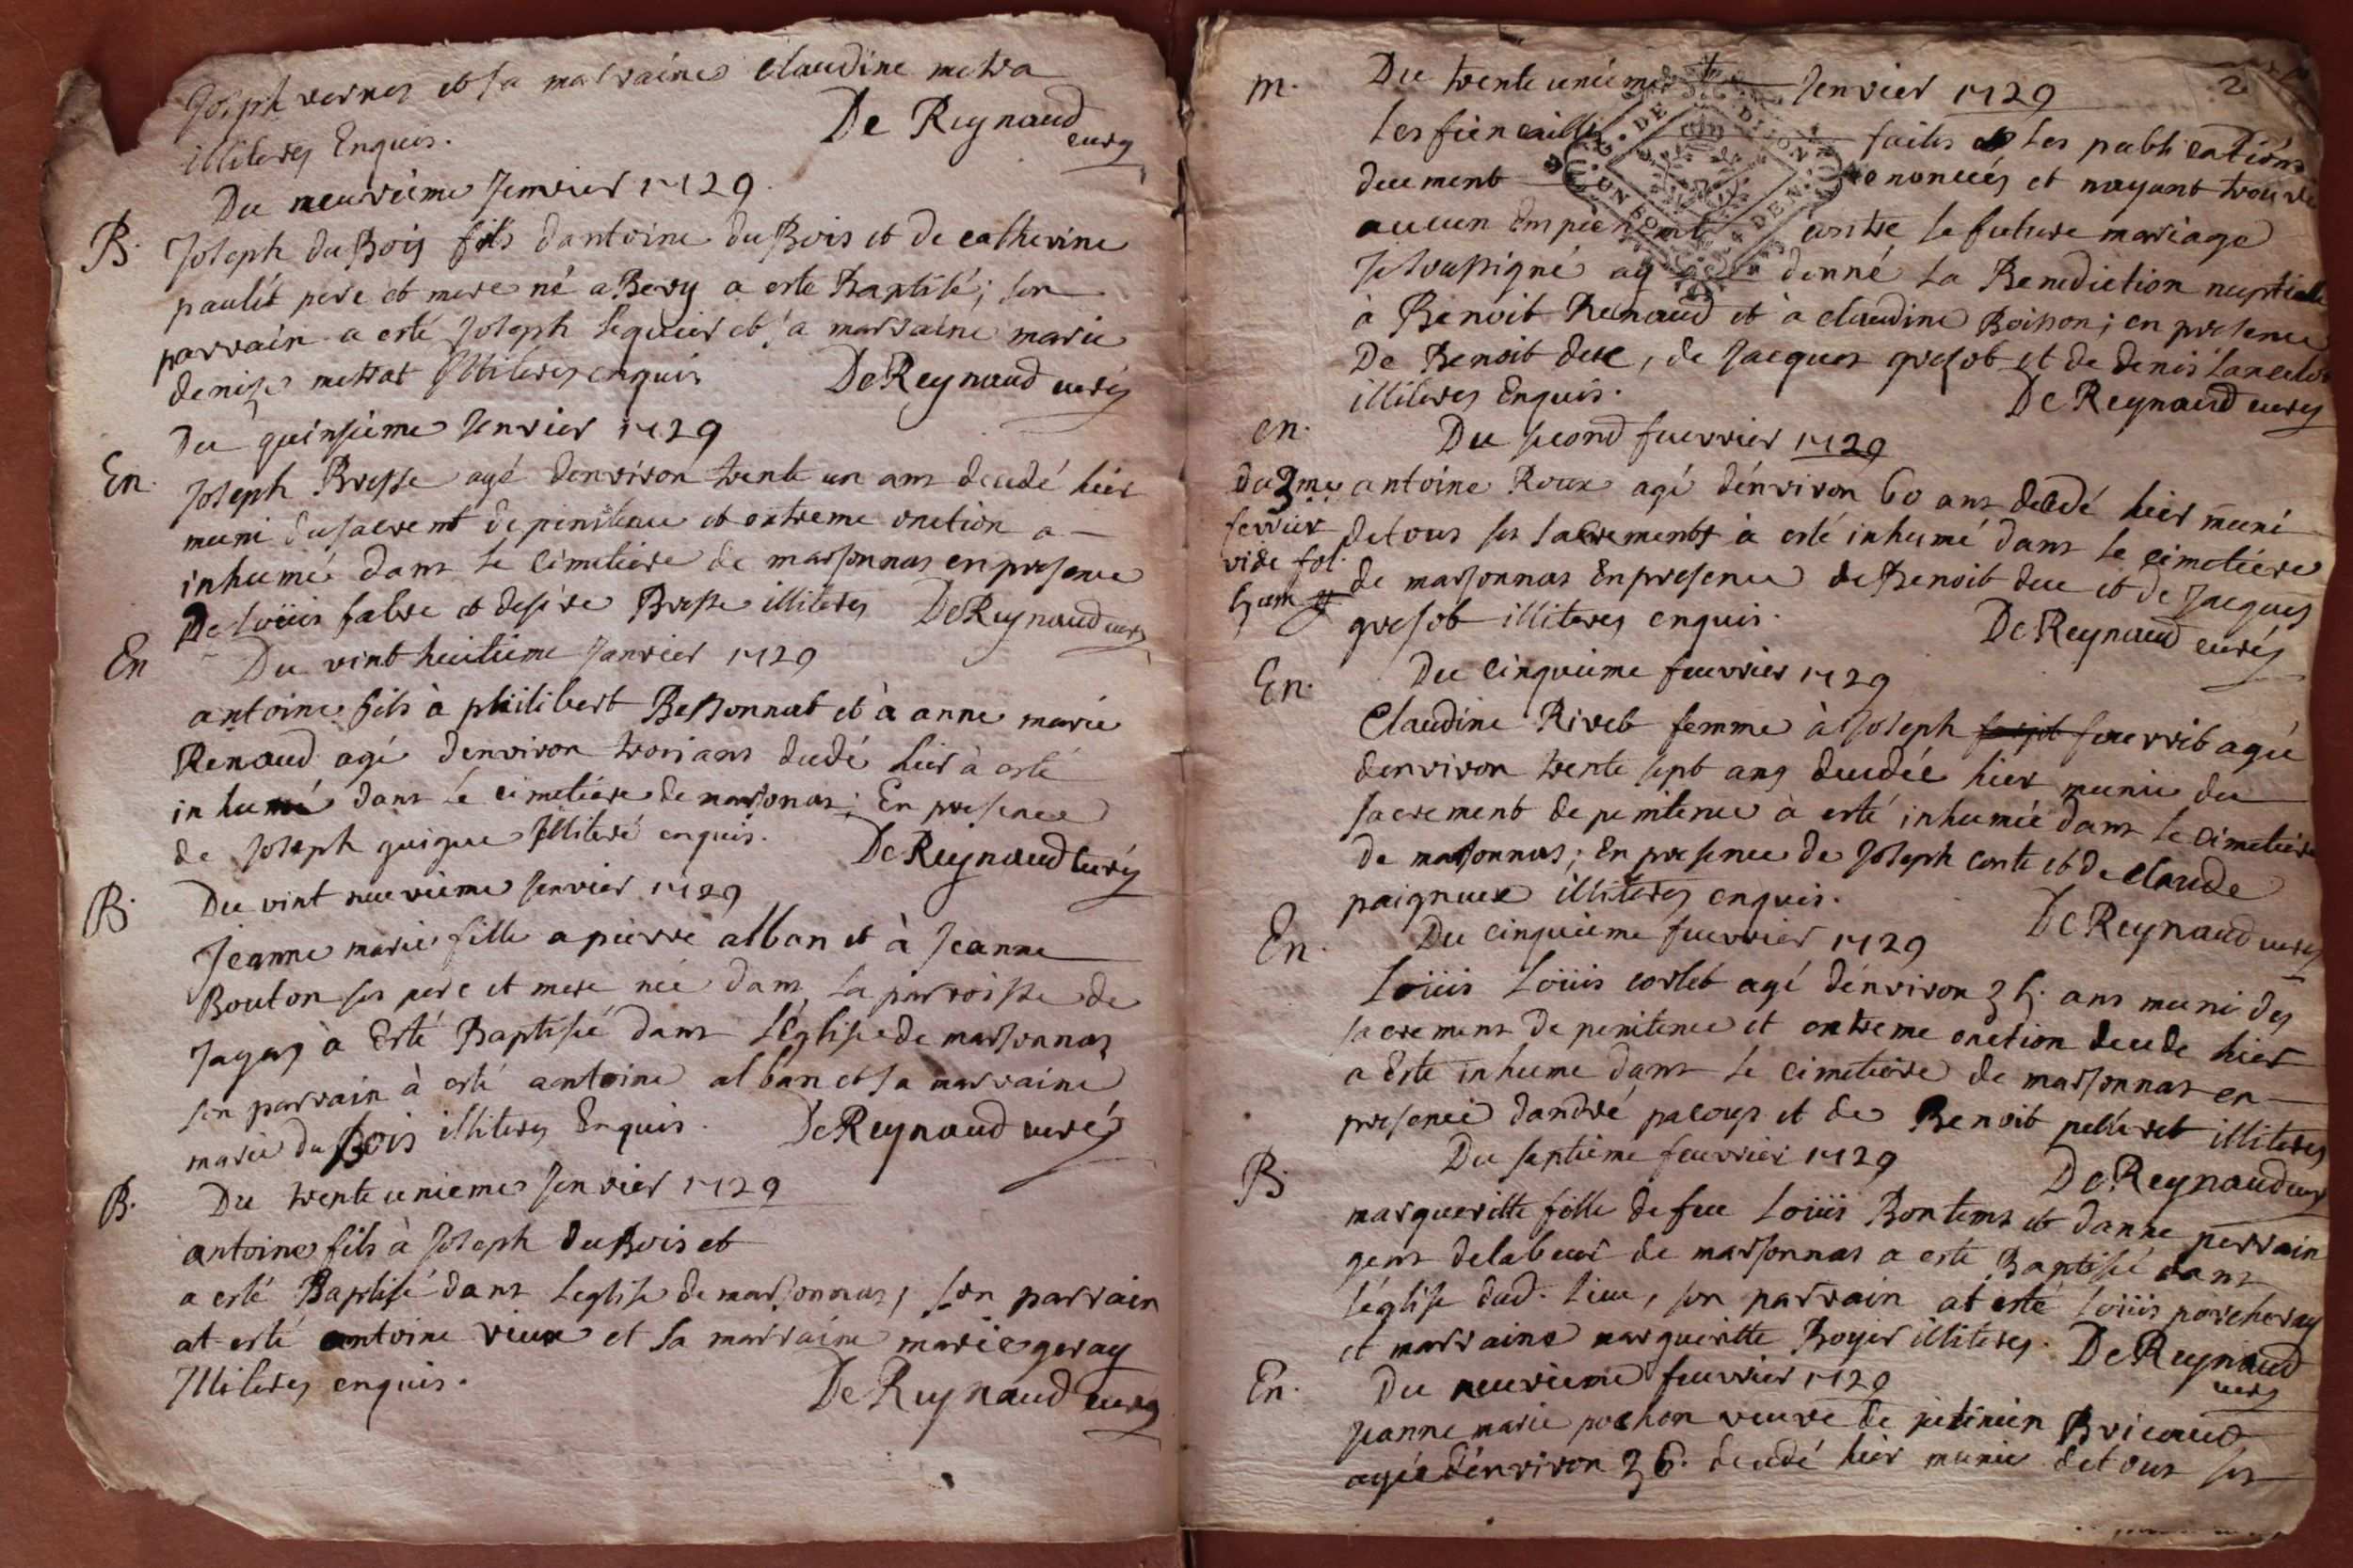 Joseph vernes et sa marraine Claudine metra
illiteres Enquis. De Reynaud
curé
Du neuvieme Jenvier 1729.
B. Joseph du Bois fils dantoine du Bois et de catherine
paulet pere et mere né a Bery a este Baptisé; son
parrain a esté Joseph seguier et sa marraine marie
denise mettrat Illiteres enquis De Reynaud curé
Du quinsieme Jenvier 1729
En. Joseph Bresse agé denviron trente un ans decedé hier
muni du sacremt de penitence et extreme onction a
inhumé dans le cimetiere de marsonnas en presence
De Loüis fabre et desire Bresse illiteres De Reynaud curé
En Du vint huitieme Janvier 1729
antoine fils à philibert Bessonnat et à anne marie
Renaud agé denviron trois ans decedé hier à esté
inhumé dans le cimetiere de marsonas; En presence
de Joseph guigue Illiteré enquis. De Reynaud curé
B. Du vint neuvieme Jenvier 1729
Jeanne marie fille a pierre alban et à Jeanne
Bouton ses pere et mere née dans la parroisse de
Jayas à Esté Baptisée dans L'Eglise de marsonnas
son parrain à esté antoine alban et sa marraine
marie du Bois illiteres Enquis. De Reynaud curé
B. Du trente unieme Jenvier 1729
antoine fils à Joseph du Bois et
a esté Baptisé dans Leglise de marsonnas; son parrain
at esté antoine vieux et sa marraine marie geray
Illiteres enquis. De Reynaud curé
2
m. Du trente unieme Jenvier 1729
Les fiencailles faites et les publications
duement énoncées et nayant trouvé
aucun Empechement contre le future mariage
Je soussigné ay donné la Benediction nuptiale
à Benoit Renaud et à claudine Boisson; en presence
De Benoit duc, de Jacques gresot et de denis Lancelot
illiteres Enquis. De Reynaud curé
GE. DE DIJON
UN SOL 4 DEN.
en. Du second feuvrier 1729
antoine Roux agé dénviron 60 ans decedé hier muni
de tous ses sacrements à esté inhumé dans le cimetiére
de marsonnas En presence de Benoit duc et de Jacques
gresot illiteres enquis. De Reynaud curé
du 3me
fevrier
vide fol.
En. Du Cinquieme feuvrier 1729
Claudine Rivet femme à Joseph feuvrib agée
denviron trente sept ans decedée hier munie du
sacrement de penitence à esté inhumée dans le cimetiere
de marsonnas; En presence de Joseph conte et de claude
paigneux illiteres enquis. De Reynaud curé
En. Du cinquieme feuvrier 1729
Loüis Loüis corlet agé dénviron 35. ans muni des
sacremens de penitence et extreme onction decede hier
a Este inhume dans le cimetiere de marsonnas en
presence dandré pacoup et de Benoit pelleret illiteres
De Reynaud curé
B. Du septieme feuvrier 1729
margueritte fille de feu Loüis Bontems et danne perrain
gens de labeur de marsonnas a este Baptisée dans
l'église dud. Lieu, son parrain at esté Loüis porcheray
et marraine margueritte Boyer illiteres. De Reynaud
curé
En. Du neuvieme feuvrier 1729
Jeanne marie pochon veuve de Bricaud
agée dénviron 36. decedé hier munie de tous ses